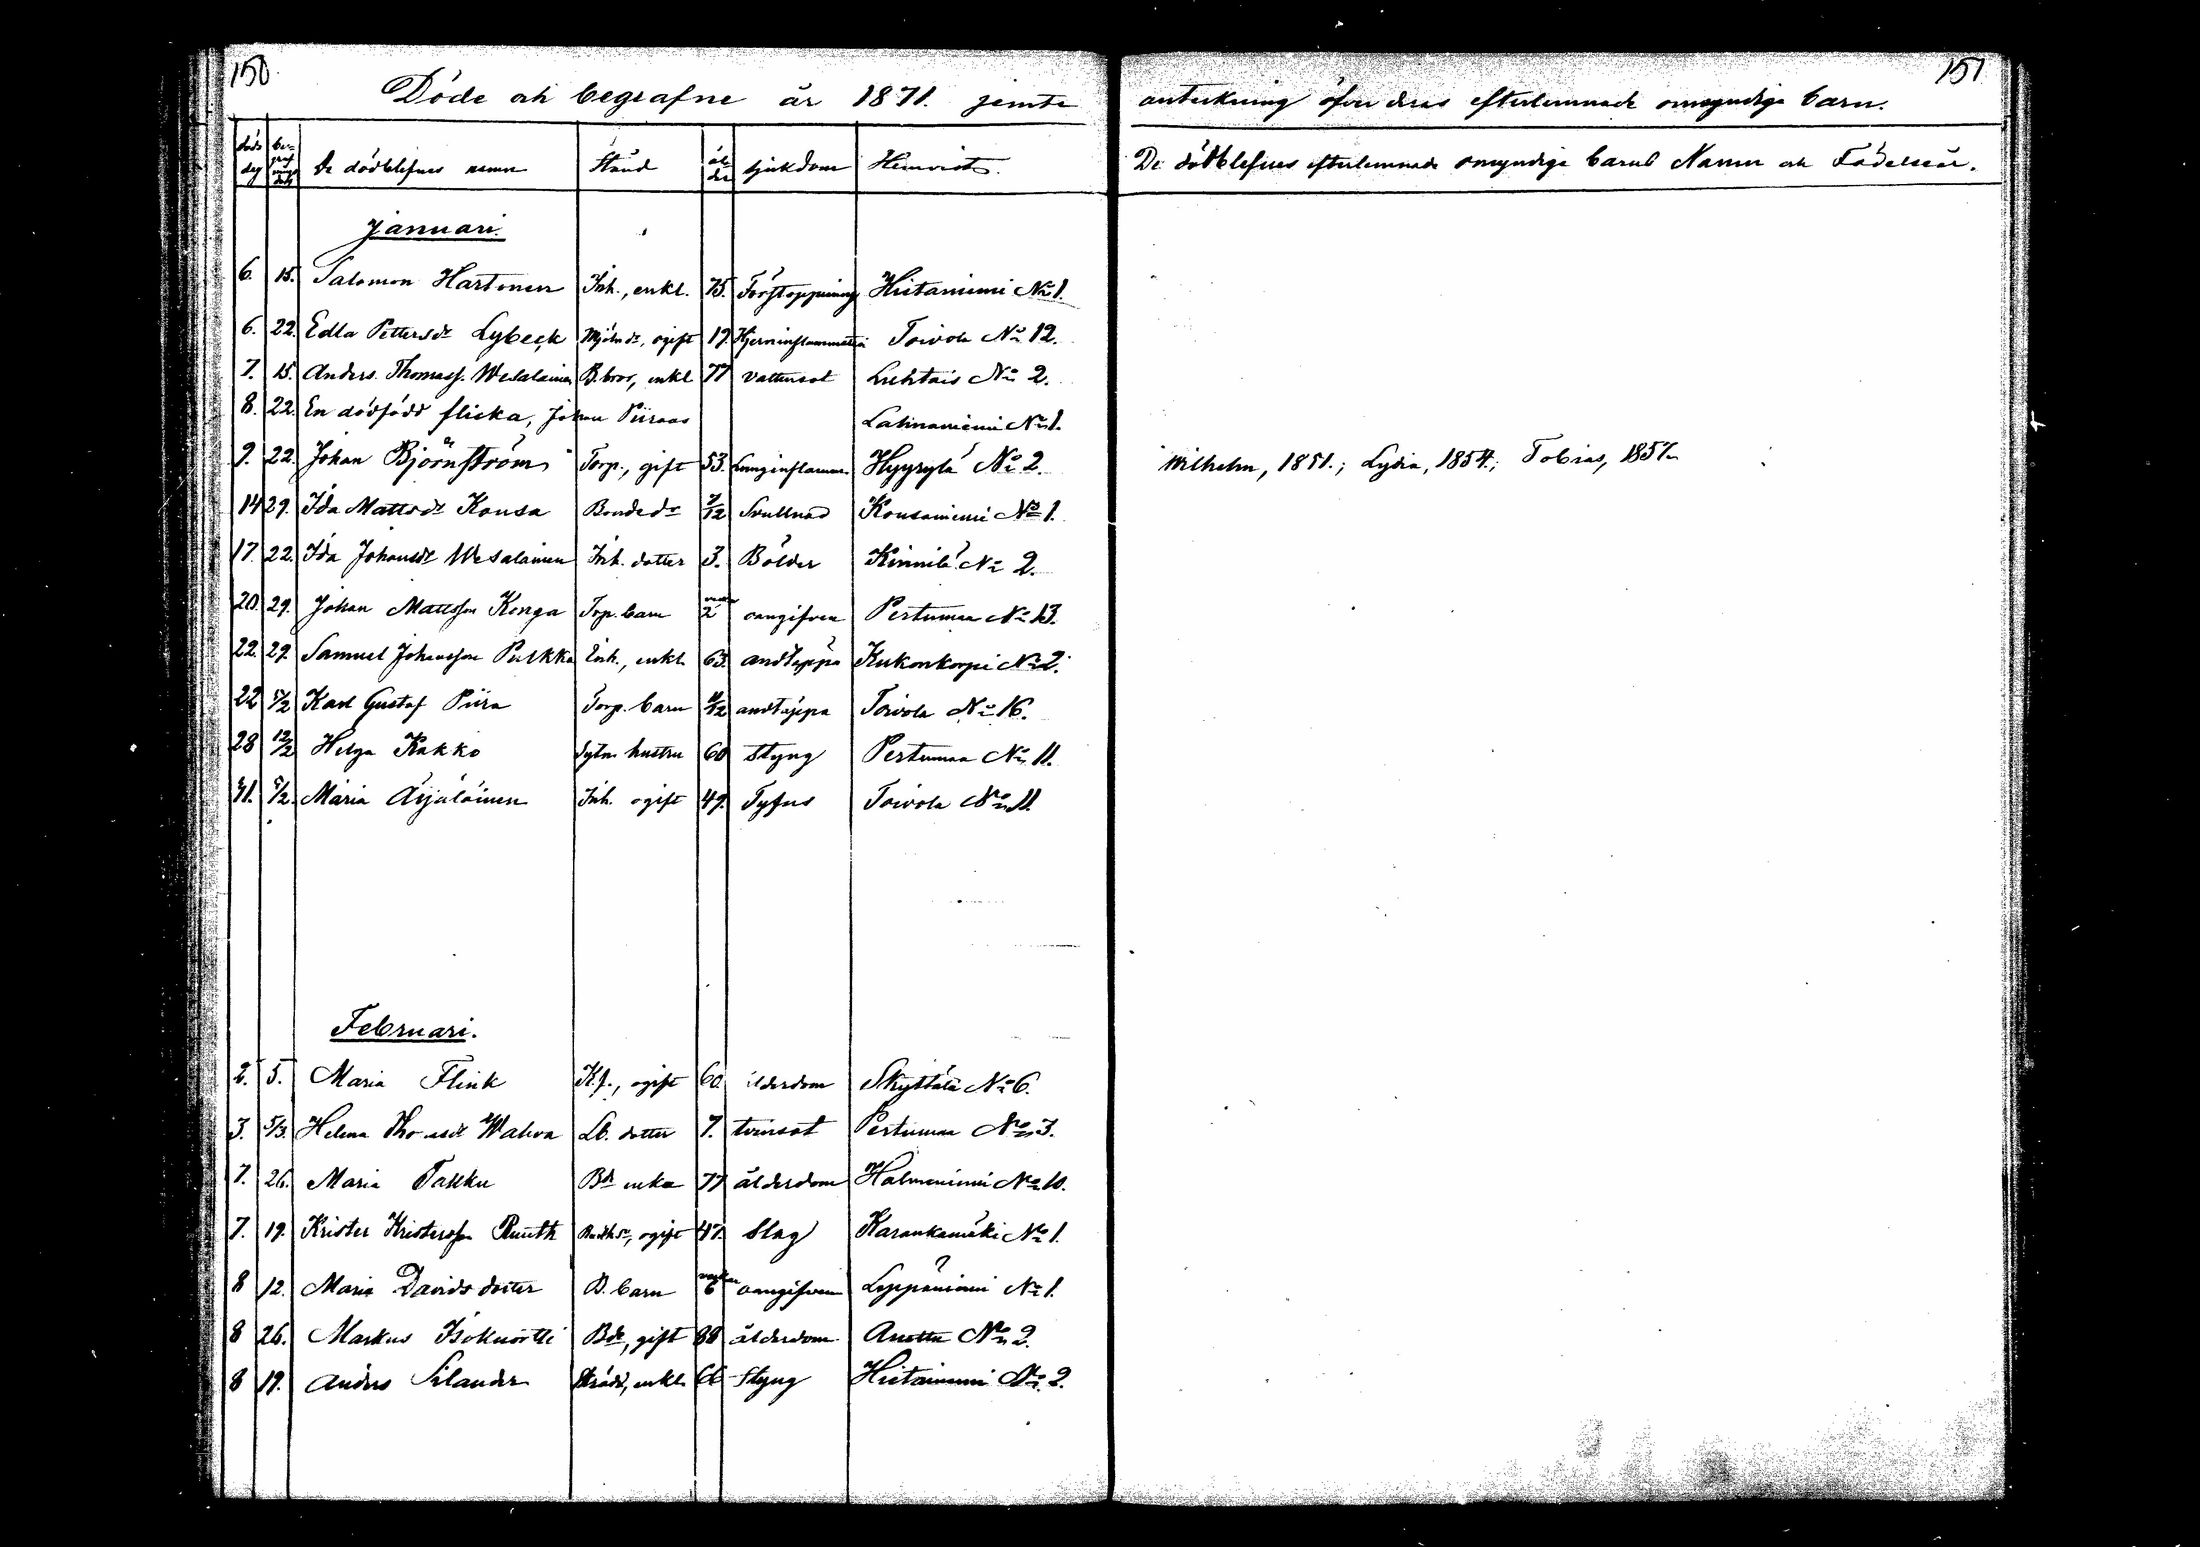 150
Döde och begrafne år 1871. jemte
döds dag be- graf nings dag De dödblefnes namn Stånd ål der sjukdom Hemvist.
Januari.
6. 15. Salomon Hartonen Inh., enkl. 75. Förstoppning Hietaniemi No 1.
6. 22. Edla Pettersdr Lybeck Mjölndr, ogift 19. Hjerninflammation Toivola No 12.
7. 15. Anders Thomass. Wesalainen B. bror, enkl 77 vattusot Luhtais No 2.
8. 22. En dödfödd flicka, Johan Piiraas Lahnaniemi No 1.
9. 22. Johan Björnström Torp., gift 53. Lunginflamm. Hyyrylä No 2.
14 29. Ida Mattsdr Kousa Bondedr 7/12 Svullnad Kousaniemi No 1.
17. 22. Ida Johansdr Wesalainen Inh. dotter 3. Bölder Kinnilä No 2.
20. 29. Johan Mattsson Konga Torp. barn 2 oangifven Pertumaa No 13.
22. 29. Samuel Johansson Pulkka Inh., enkl. 63. andtäppa Kukonkorpi No 2.
22 5/2 Karl Gustaf Piira Torp. barn /12 andtäppa Toivola No 16.
28 12/2 Helga Kakko Sytn. hustru 60 styng Pertumaa No 11.
31. 5/2. Maria Äijäläinen Inh. ogift 49. Tyfus Toivola No 11.
Februari.
2. 5. Maria Flink K.f., ogift 60. ålderdom Skyttälä No 6.
3. 5/3. Helena Thomasdr Walva Lb. dotter 7. tvinsot Pertumaa No 3.
7. 26. Maria Takku Bdr enka 77 ålderdom Halmeniemi No 10.
7. 19. Krister Kristersson Ruuth ogift 47. Slag Karankamäki No 1.
8 12. Maria Davids dotter B. barn 6 veckor oangifven Leppäniemi No 1.
8 26. Markus Isokuortti Bde, gift 88 ålderdom Anettu No 2.
8 19. Anders Silander enkl. 66 Styng Hietaniemi No 2.
151
anteckning öfver deras efterlemnade omyndige barn.
De dödblefnes efterlemnade omyndige barns Namn och Födelseår.
Wilhelm, 1851.; Lydia, 1854.; Tobias, 1857.